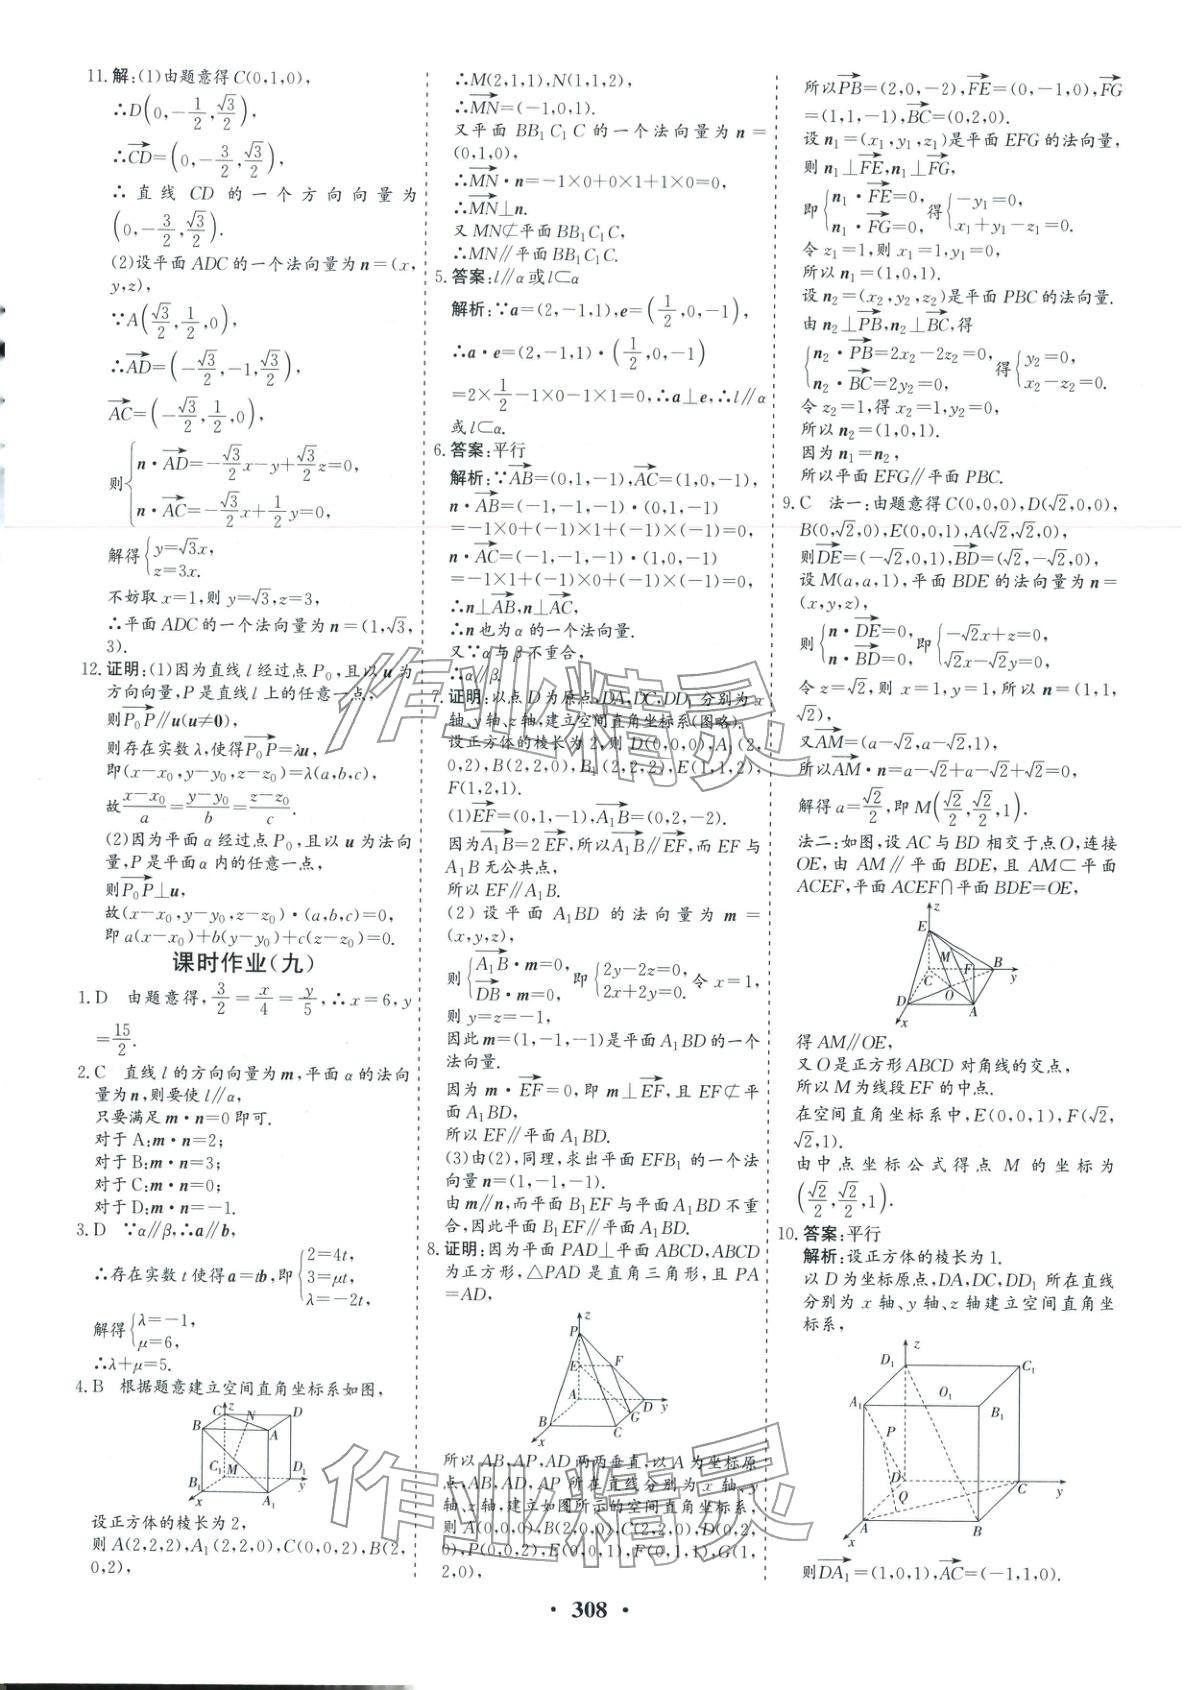 11.解:(1)由题意得C(0,1,0),
∴D(0,-1/2,√3/2),
∴CD→=(0,-3/2,√3/2),
∴直线 CD 的一个方向向量为
(0,-3/2,√3/2).
(2)设平面 ADC 的一个法向量为 n=(x,
y,z),
∵A(√3/2,1/2,0),
∴AD→=(-√3/2,-1,√3/2),
AC→=(-√3/2,1/2,0),
则{n·AD→=-√3/2x-y+√3/2z=0,
n·AC→=-√3/2x+1/2y=0,
解得{y=√3x,
z=3x.
不妨取 x=1,则 y=√3,z=3,
∴平面 ADC 的一个法向量为 n=(1,√3,
3).
12.证明:(1)因为直线 l 经过点 P₀,且以 u 为
方向向量,P 是直线 l 上的任意一点,
则P₀P→∥u(u≠0),
则存在实数 λ,使得P₀P→=λu,
即(x-x₀,y-y₀,z-z₀)=λ(a,b,c),
故(x-x₀)/a=(y-y₀)/b=(z-z₀)/c.
(2)因为平面 α 经过点 P₀,且以 u 为法向
量,P 是平面 α 内的任意一点,
则P₀P→⊥u,
故(x-x₀,y-y₀,z-z₀)·(a,b,c)=0,
即 a(x-x₀)+b(y-y₀)+c(z-z₀)=0.
课时作业(九)
1.D 由题意得,3/2=x/4=y/5,∴x=6,y
=15/2.
2.C 直线 l 的方向向量为 m,平面 α 的法向
量为 n,则要使 l∥α,
只要满足 m·n=0 即可.
对于 A:m·n=2;
对于 B:m·n=3;
对于 C:m·n=0;
对于 D:m·n=-1.
3.D ∵α∥β,∴a∥b,
∴存在实数 t 使得 a=tb,即{2=4t,
3=μt,
λ=-2t,
解得{λ=-1,
μ=6,
∴λ+μ=5.
4.B 根据题意建立空间直角坐标系如图,
C z N D
B A
C₁ M D₁
B₁ x A₁ y
设正方体的棱长为 2,
则 A(2,2,2),A₁(2,2,0),C(0,0,2),B(2,
0,2),
∴M(2,1,1),N(1,1,2),
∴MN→=(-1,0,1).
又平面 BB₁C₁C 的一个法向量为 n=
(0,1,0),
∴MN→·n=-1×0+0×1+1×0=0,
∴MN→⊥n.
又 MN⊄平面 BB₁C₁C,
∴MN∥平面 BB₁C₁C.
5.答案:l∥α 或 l⊂α
解析:∵a=(2,-1,1),e=(1/2,0,-1),
∴a·e=(2,-1,1)·(1/2,0,-1)
=2×1/2-1×0-1×1=0,∴a⊥e,∴l∥α
或 l⊂α.
6.答案:平行
解析:∵AB→=(0,1,-1),AC→=(1,0,-1),
n·AB→=(-1,-1,-1)·(0,1,-1)
=-1×0+(-1)×1+(-1)×(-1)=0,
n·AC→=(-1,-1,-1)·(1,0,-1)
=-1×1+(-1)×0+(-1)×(-1)=0,
∴n⊥AB→,n⊥AC→,
∴n 也为 α 的一个法向量.
又∵α 与 β 不重合,
∴α∥β.
7.证明:以点 D 为原点,DA,DC,DD₁ 分别为 x
轴、y 轴、z 轴,建立空间直角坐标系(图略).
设正方体的棱长为 2,则 D(0,0,0),A₁(2,
0,2),B(2,2,0),B₁(2,2,2),E(1,1,2),
F(1,2,1).
(1)EF→=(0,1,-1),A₁B→=(0,2,-2).
因为A₁B→=2EF→,所以A₁B→∥EF→,而 EF 与
A₁B 无公共点,
所以 EF∥A₁B.
(2)设平面 A₁BD 的法向量为 m=
(x,y,z),
则{A₁B→·m=0,
DB→·m=0, 即{2y-2z=0,
2x+2y=0. 令 x=1,
则 y=z=-1,
因此 m=(1,-1,-1)是平面 A₁BD 的一个
法向量.
因为 m·EF→=0,即 m⊥EF→,且 EF⊄平
面 A₁BD,
所以 EF∥平面 A₁BD.
(3)由(2),同理,求出平面 EFB₁ 的一个法
向量 n=(1,-1,-1).
由 m∥n,而平面 B₁EF 与平面 A₁BD 不重
合,因此平面 B₁EF∥平面 A₁BD.
8.证明:因为平面 PAD⊥平面 ABCD,ABCD
为正方形,△PAD 是直角三角形,且 PA
=AD,
z
P
E F
A D y
B G
x C
所以 AB,AP,AD 两两垂直,以 A 为坐标原
点,AB,AD,AP 所在直线分别为 x 轴、y
轴、z 轴,建立如图所示的空间直角坐标系,
则 A(0,0,0),B(2,0,0),C(2,2,0),D(0,2,
0),P(0,0,2),E(0,0,1),F(0,1,1),G(1,
2,0),
所以PB→=(2,0,-2),FE→=(0,-1,0),FG→
=(1,1,-1),BC→=(0,2,0).
设 n₁=(x₁,y₁,z₁)是平面 EFG 的法向量,
则 n₁⊥FE→,n₁⊥FG→,
即{n₁·FE→=0,
n₁·FG→=0, 得{-y₁=0,
x₁+y₁-z₁=0.
令 z₁=1,则 x₁=1,y₁=0,
所以 n₁=(1,0,1).
设 n₂=(x₂,y₂,z₂)是平面 PBC 的法向量.
由 n₂⊥PB→,n₂⊥BC→,得
{n₂·PB→=2x₂-2z₂=0,
n₂·BC→=2y₂=0, 得{y₂=0,
x₂-z₂=0.
令 z₂=1,得 x₂=1,y₂=0,
所以 n₂=(1,0,1).
因为 n₁=n₂,
所以平面 EFG∥平面 PBC.
9.C 法一:由题意得 C(0,0,0),D(√2,0,0),
B(0,√2,0),E(0,0,1),A(√2,√2,0),
则DE→=(-√2,0,1),BD→=(√2,-√2,0),
设 M(a,a,1),平面 BDE 的法向量为 n=
(x,y,z),
则{n·DE→=0,
n·BD→=0, 即{-√2x+z=0,
√2x-√2y=0,
令 z=√2,则 x=1,y=1,所以 n=(1,1,
√2),
又AM→=(a-√2,a-√2,1),
所以AM→·n=a-√2+a-√2+√2=0,
解得 a=√2/2,即 M(√2/2,√2/2,1).
法二:如图,设 AC 与 BD 相交于点 O,连接
OE,由 AM∥平面 BDE,且 AM⊂平面
ACEF,平面 ACEF∩平面 BDE=OE,
z
E
M F B
C y
D O A
x
得 AM∥OE,
又 O 是正方形 ABCD 对角线的交点,
所以 M 为线段 EF 的中点.
在空间直角坐标系中,E(0,0,1),F(√2,
√2,1).
由中点坐标公式得点 M 的坐标为
(√2/2,√2/2,1).
10.答案:平行
解析:设正方体的棱长为 1.
以 D 为坐标原点,DA,DC,DD₁ 所在直线
分别为 x 轴、y 轴、z 轴建立空间直角坐
标系,
z
D₁ C₁
A₁ O₁ B₁
P
D C y
Q
A B
x
则DA₁→=(1,0,1),AC→=(-1,1,0).
· 308 ·
作业精灵
作业精灵